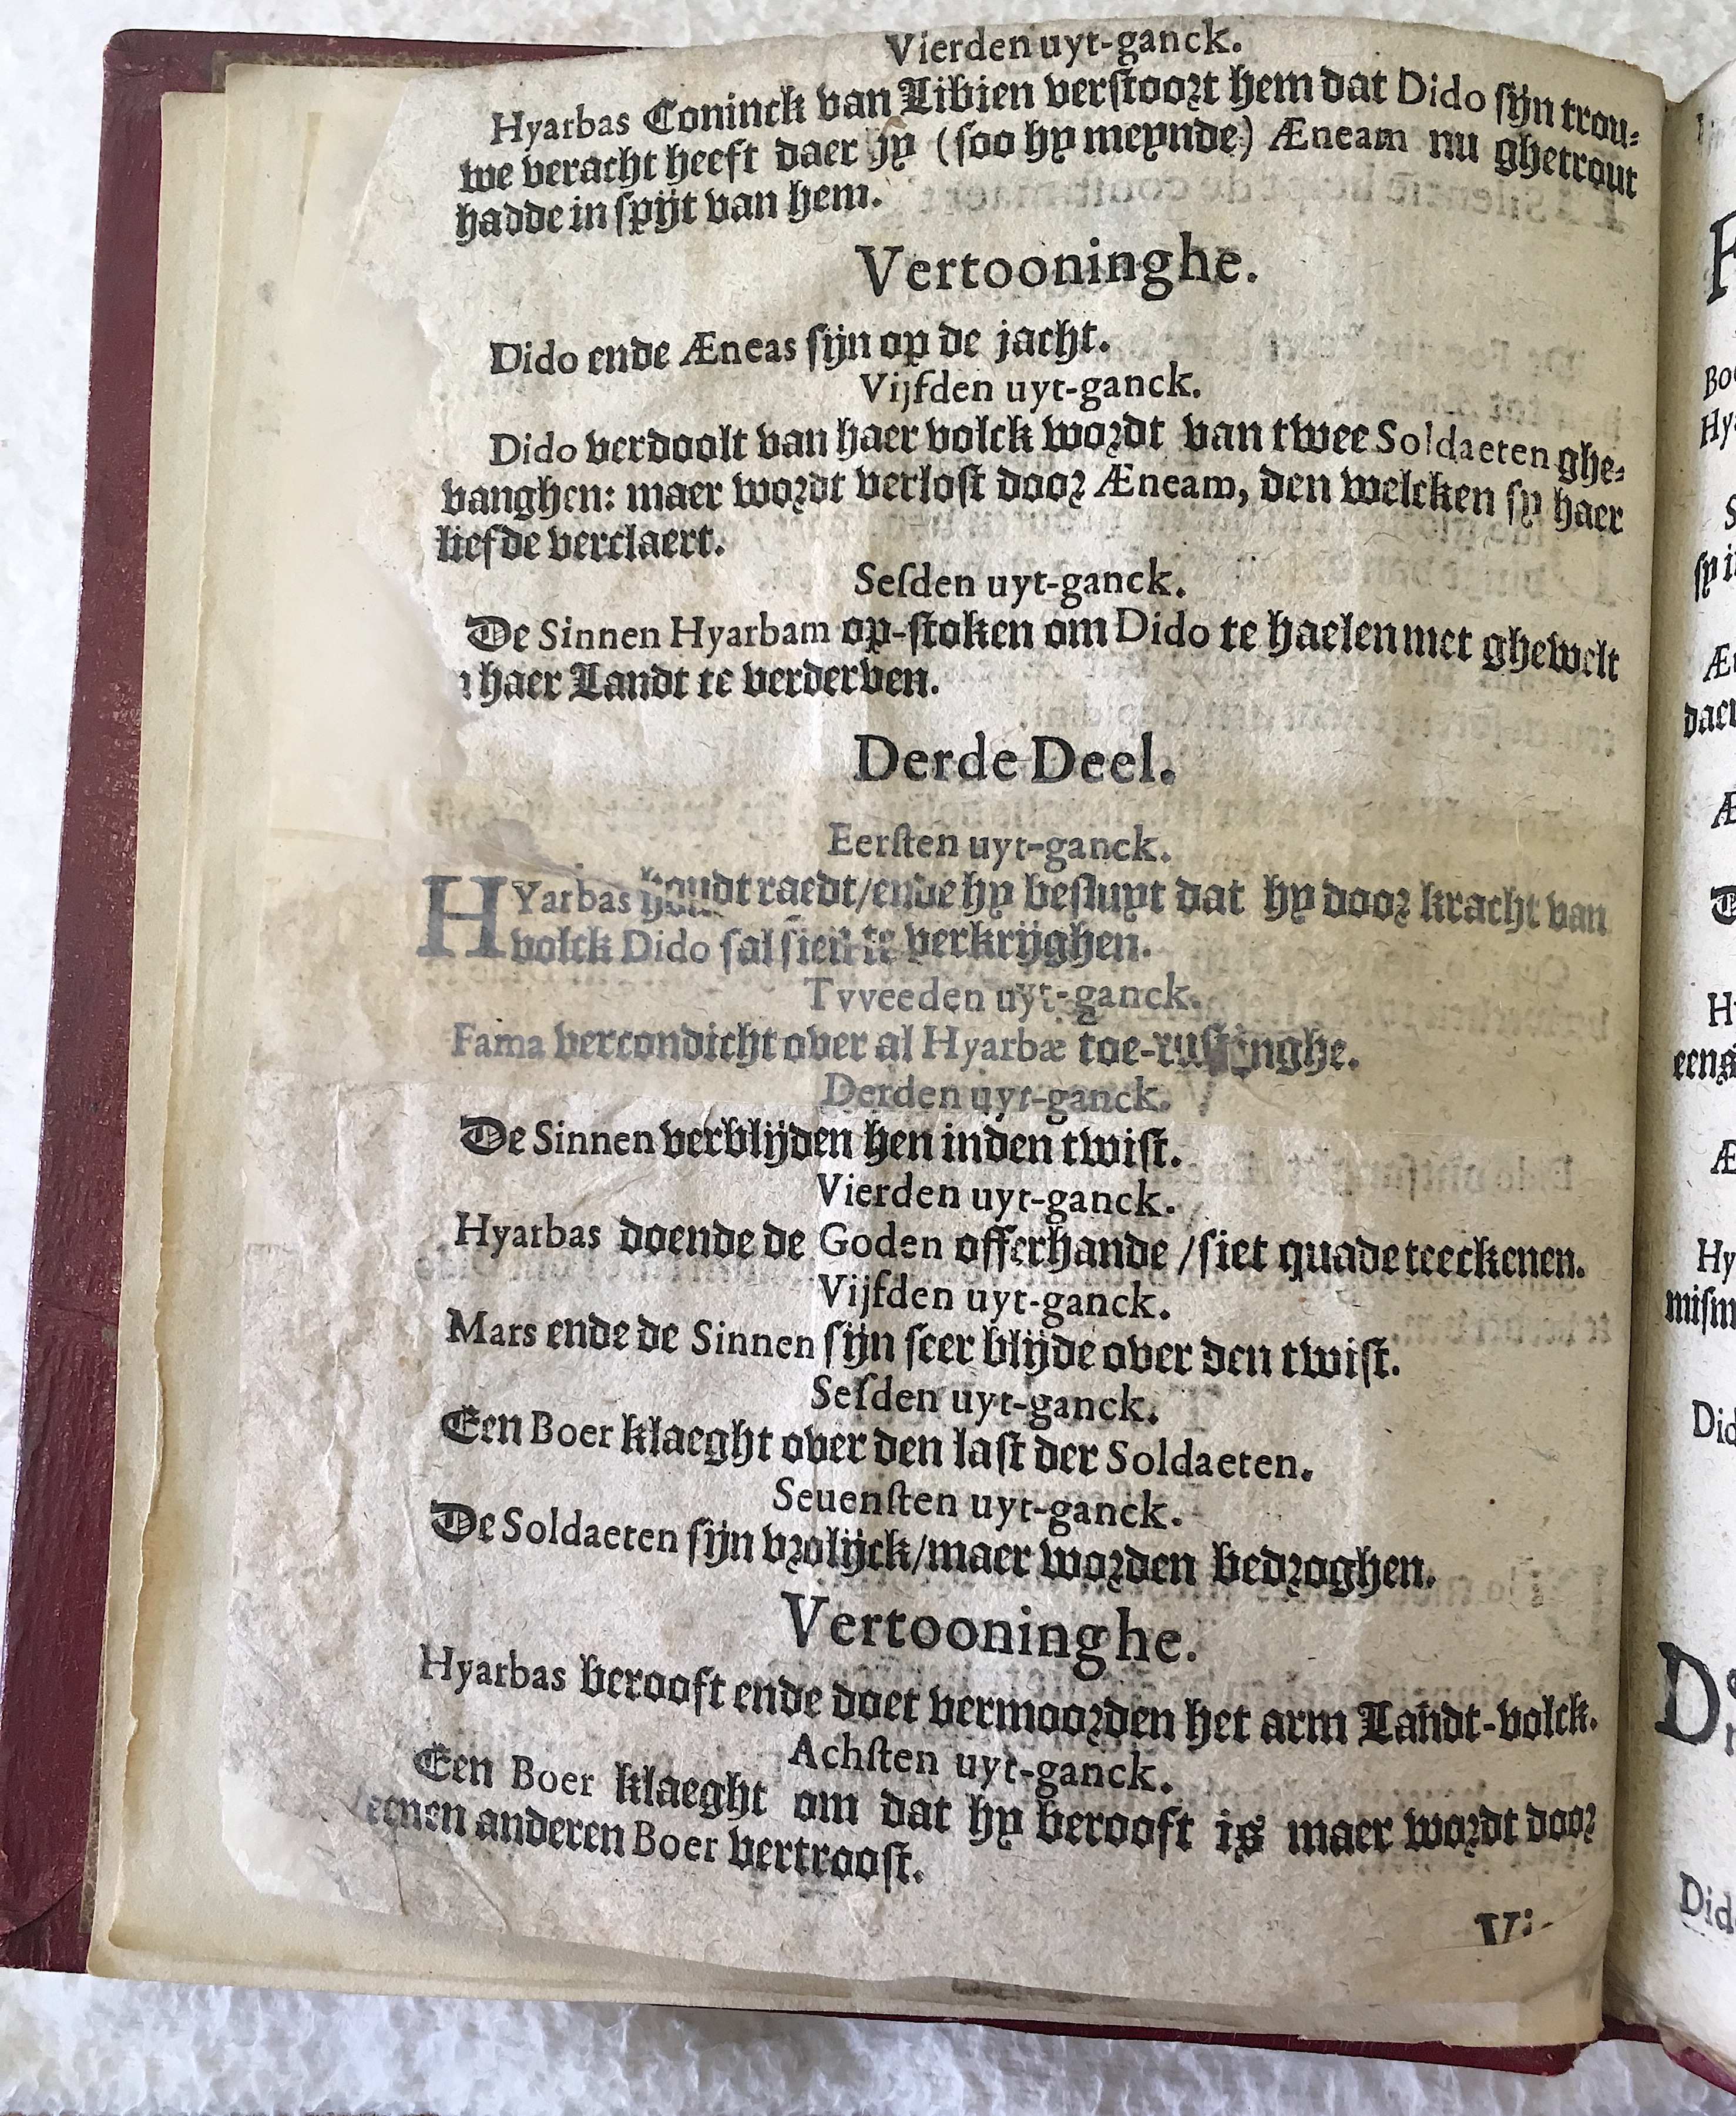 Vierden uyt-ganck.
Hyarbas Coninck van Libien verstoort hem dat Dido sijn trou-
we veracht heeft daer hy (soo hy meynde) Æneam nu ghetrout
hadde in spijt van hem.
Vertooninghe.
Dido ende Æneas sijn op de jacht.
Vijfden uyt-ganck.
Dido verdoolt van haer volck wordt van twee Soldaeten ghe-
vanghen: maer wordt verlost door Æneam, den welcken sy haer
liefde verclaert.
Sesden uyt-ganck.
De Sinnen Hyarbam op-stoken om Dido te haelen met ghewelt
haer Landt te verderven.
Derde Deel.
Eersten uyt-ganck.
HYarbas houdt raedt/ende hy besluyt dat hy door kracht van
volck Dido sal sien te verkrijghen.
Tvveeden uyt-ganck.
Fama vercondicht over al Hyarbæ toe-rustinghe.
Derden uyt-ganck.
De Sinnen verblijden hen inden twist.
Vierden uyt-ganck.
Hyarbas doende de Goden offerhande /siet quade teeckenen.
Vijfden uyt-ganck.
Mars ende de Sinnen sijn seer blijde over den twist.
Sesden uyt-ganck.
Een Boer klaeght over den last der Soldaeten.
Seuensten uyt-ganck.
De Soldaeten sijn vrolijck/maer worden bedroghen.
Vertooninghe.
Hyarbas berooft ende doet vermoorden het arm Landt-volck.
Achsten uyt-ganck.
Een Boer klaeght om dat hy berooft is maer wordt door
eenen anderen Boer vertroost.